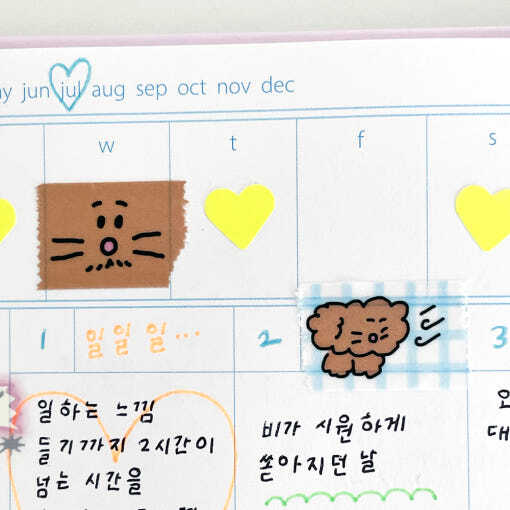 jun jul aug sep oct nov dec
w t f s
1 일일일... 2 3
일하는 느낌
들기까지 2시간이
넘는 시간을
비가 시원하게
쏟아지던 날